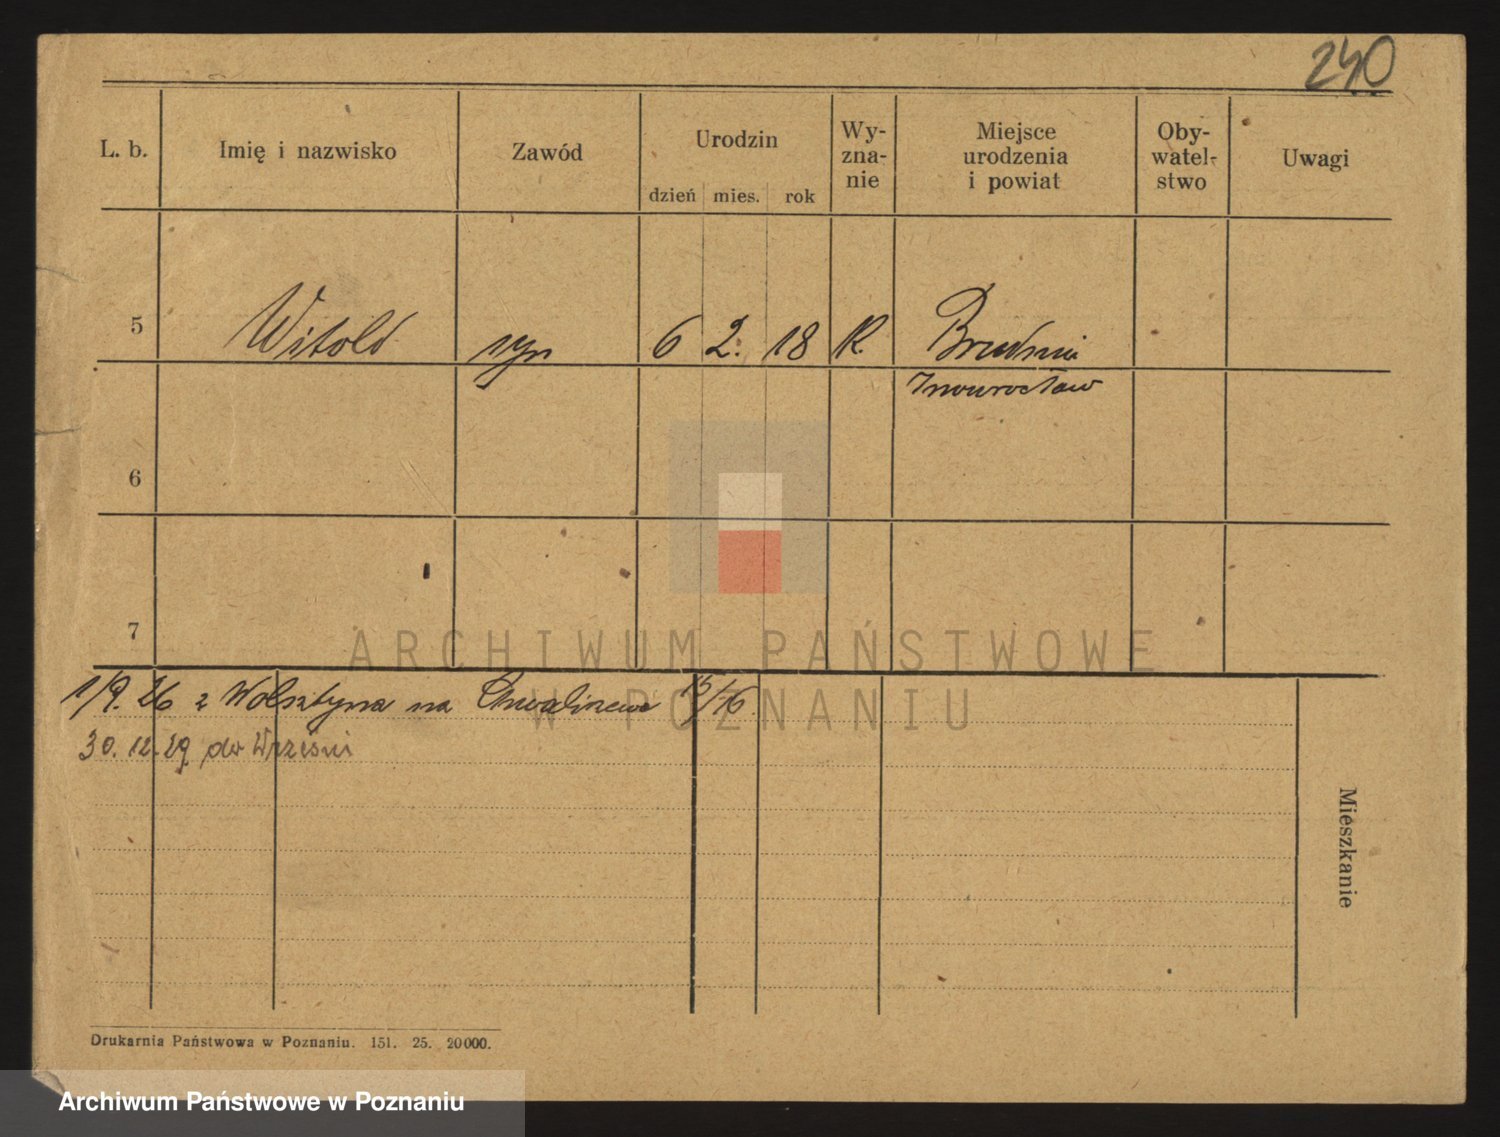 240
L. b. Imię i nazwisko Zawód Urodzin Wy- Miejsce Oby- Uwagi
zna- urodzenia watel-
dzień mies. rok nie i powiat stwo
5 Witold syn 6 2. 18 R.
Inowrocław
6
7
1/9. 26 z Wolsztyna na Chwaliszewo 15/16.
30. 12. 29. do Wrześni
Mieszkanie
Drukarnia Państwowa w Poznaniu. 151. 25. 20000.
ARCHIWUM PAŃSTWOWE
W POZNANIU
Archiwum Państwowe w Poznaniu